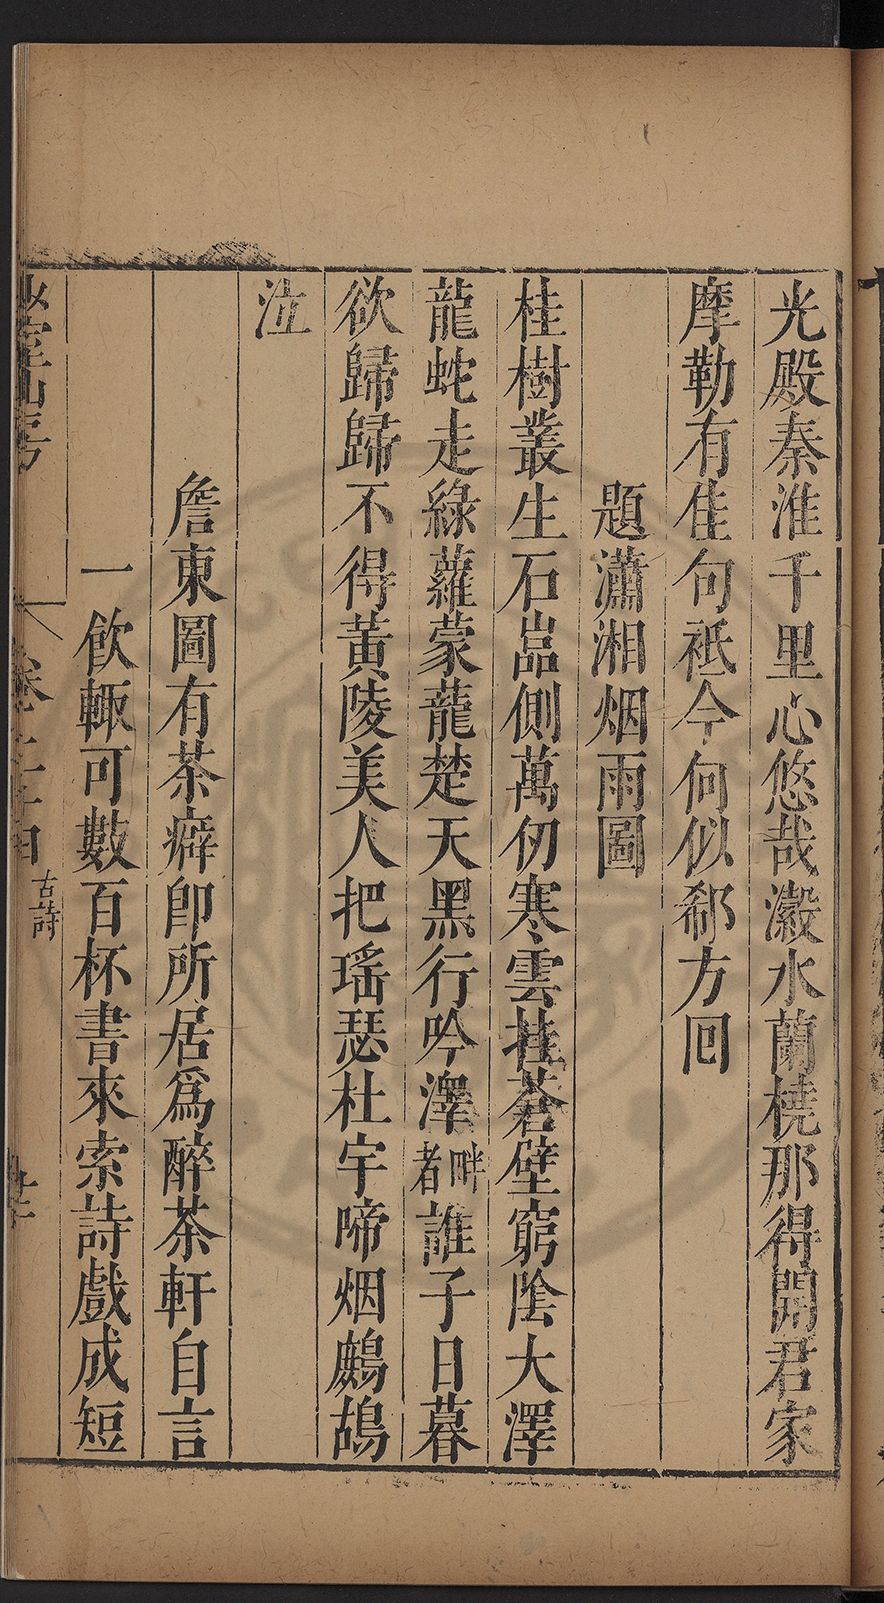 光殿秦淮千里心悠哉瀫水蘭橈那得開君家
摩勒有佳句祇今何似郗方回
題瀟湘烟雨圖
桂樹叢生石嵓側萬仞寒雲挂蒼壁窮陰大澤
龍蛇走綠蘿蒙蘢楚天黑行吟澤畔者誰子日暮
欲歸歸不得黃陵美人把瑶瑟杜宇啼烟鷓鴣
泣
詹東圖有茶癖卽所居爲醉茶軒自言
一飲輙可數百杯書來索詩戲成短
少室山房
卷二十四
古詩